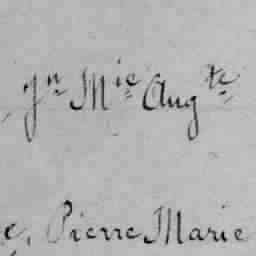 Jn Mie Augte
e, Pierre Marie